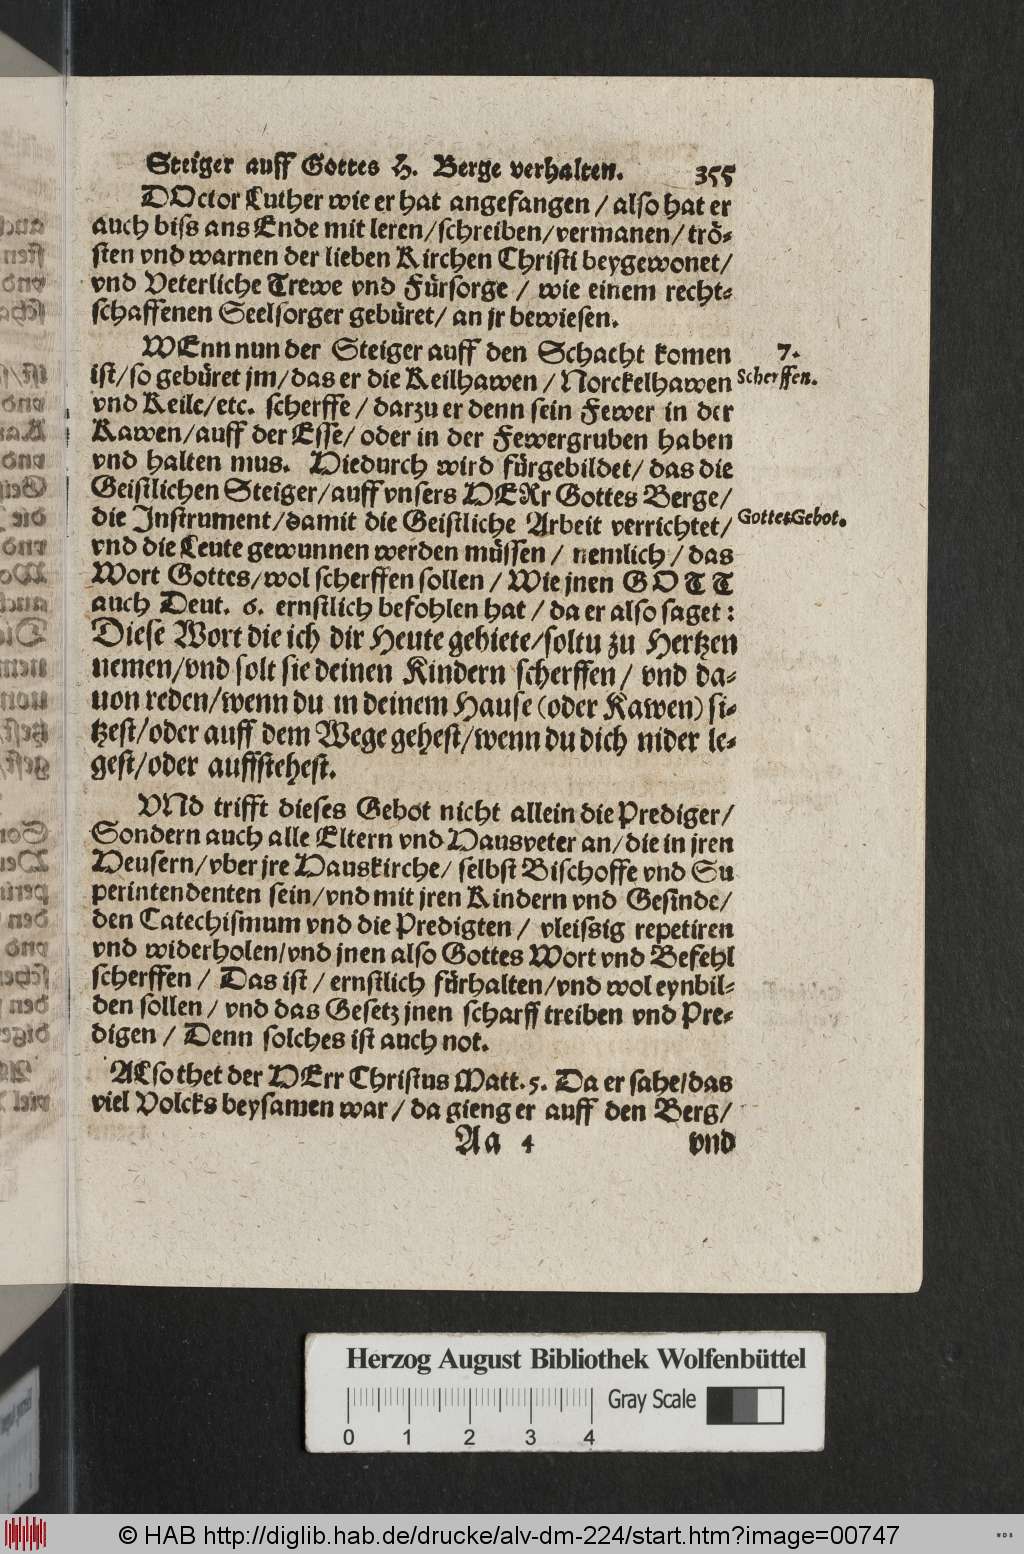 Steiger auff Gottes H. Berge verhalten. 355
DOctor Luther wie er hat angefangen / also hat er
auch biss ans Ende mit leren/schreiben/vermanen/trö-
sten vnd warnen der lieben Kirchen Christi beygewonet/
vnd Veterliche Trewe vnd Fürsorge / wie einem recht-
schaffenen Seelsorger gebüret/ an jr bewiesen.
WEnn nun der Steiger auff den Schacht komen
7.
ist/so gebüret jm/das er die Keilhawen / Norckelhawen
Scherffen.
vnd Keile/etc. scherffe / darzu er denn sein Fewer in der
Kawen/auff der Esse/ oder in der Fewergruben haben
vnd halten mus. Hiedurch wird fürgebildet/ das die
Geistlichen Steiger/auff vnsers HERr Gottes Berge/
die Instrument/damit die Geistliche Arbeit verrichtet/
Gottes Gebot.
vnd die Leute gewunnen werden müssen / nemlich / das
Wort Gottes/wol scherffen sollen / Wie jnen GOTT
auch Deut. 6. ernstlich befohlen hat / da er also saget:
Diese Wort die ich dir Heute gebiete/soltu zu Hertzen
nemen/vnd solt sie deinen Kindern scherffen / vnd da-
uon reden/wenn du in deinem Hause (oder Kawen) si-
tzest/oder auff dem Wege gehest/wenn du dich nider le-
gest/oder auffstehest.
VNd trifft dieses Gebot nicht allein die Prediger/
Sondern auch alle Eltern vnd Hausveter an/die in jren
Heusern/vber jre Hauskirche/ selbst Bischoffe vnd Su
perintendenten sein/vnd mit jren Kindern vnd Gesinde/
den Catechismum vnd die Predigten / vleissig repetiren
vnd widerholen/vnd jnen also Gottes Wort vnd Befehl
scherffen / Das ist / ernstlich fürhalten/vnd wol eynbil-
den sollen / vnd das Gesetz jnen scharff treiben vnd Pre-
digen / Denn solches ist auch not.
ALso thet der HErr Christus Matt. 5. Da er sahe/das
viel Volcks beysamen war / da gieng er auff den Berg/
Aa 4 vnd
Herzog August Bibliothek Wolfenbüttel
0 1 2 3 4 Gray Scale
© HAB http://diglib.hab.de/drucke/alv-dm-224/start.htm?image=00747